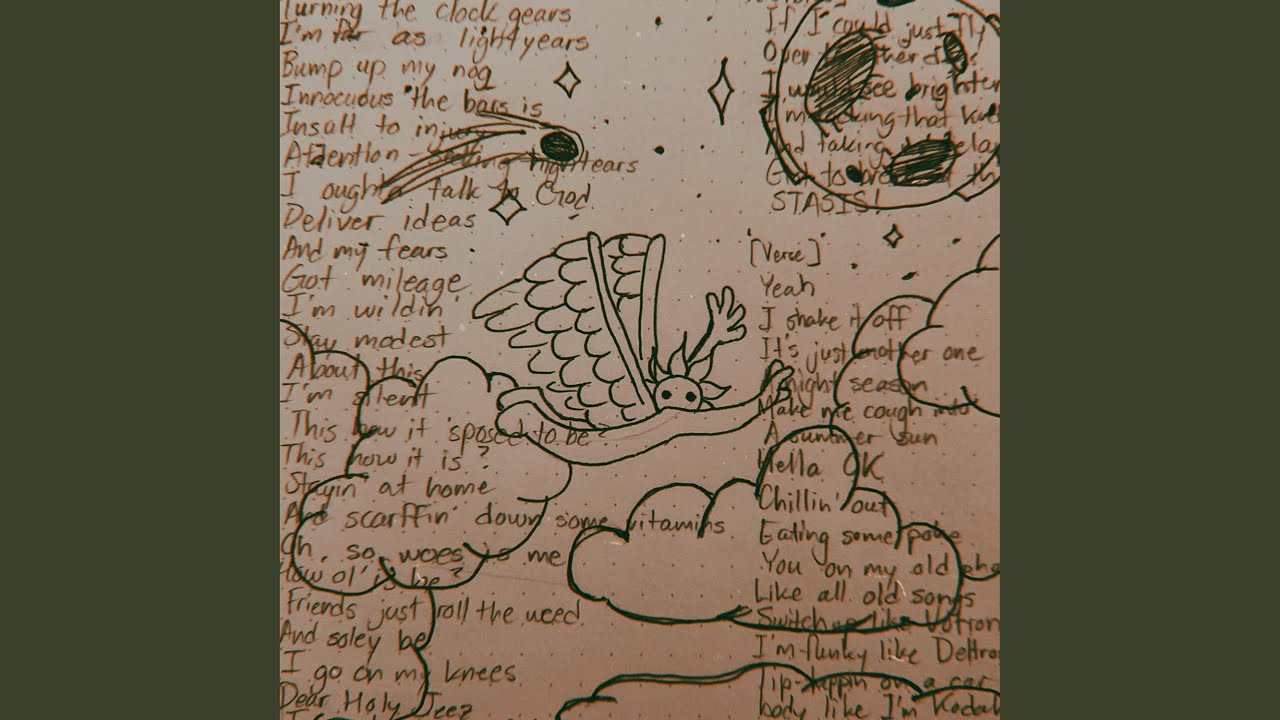 Turning the clock gears
I'm far as lightyears
Bump up my nog
Innocuous the bars is
Insalt to injury
Attention - selling nightears
I oughta talk to God
Deliver ideas
And my fears
Got mileage
I'm wildin'
Stay modest
About this
I'm silent
This how it 'sposed to be?
This how it is?
Stayin' at home
And scarffin' down some vitamins
Oh, so, woes is me
How ol' is he?
Friends just roll the weed
And soley be
I go on my knees
Dear Holy Jeez
If I could just fly
Over
I would see brighter
I'm that
And taking
Got to the
STASIS!
[Verse]
Yeah
I shake it off
It's just another one
night season
Make me cough into
A summer sun
Hella OK
Chillin' out
Eating some poke
You on my old pho
Like all old songs
Switch up like Votron
I'm funky like Deltro
Tip-tappin on a car
body like I'm Kodak